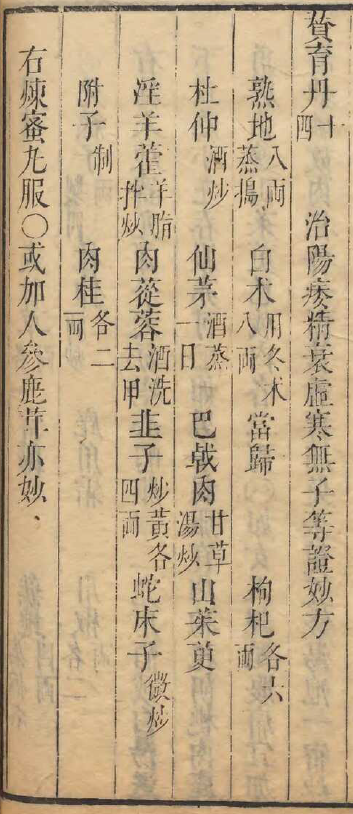 贊育丹 十四 治陽痿精衰虛寒無子等證妙方
熟地 八兩蒸搗 白朮 用冬朮八兩 當歸 枸杞 各六兩
杜仲 酒炒 仙茅 酒蒸一日 巴戟肉 甘草湯炒 山茱萸
淫羊藿 羊脂拌炒 肉蓯蓉 酒洗去甲 韭子 炒黃各四兩 蛇床子 微炒
附子 制 肉桂 各二兩
右煉蜜丸服○或加人參鹿茸亦妙、